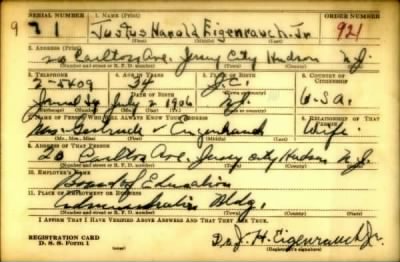 SERIAL NUMBER 1. NAME (Print) ORDER NUMBER
9 71 Justus Harold Eigenrauch Jr. 921
(First) (Middle) (Last)
2. ADDRESS (Print)
20 Carlton Ave. Jersey City Hudson N.J.
(Number and street or R. F. D. number) (Town) (County) (State)
3. TELEPHONE 4. AGE IN YEARS 5. PLACE OF BIRTH 6. COUNTRY OF CITIZENSHIP
2-5409 34 J.C.
DATE OF BIRTH
July 2 1906 N.J. U.S.A.
(Mo.) (Day) (Yr.) (State or country)
7. NAME OF PERSON WHO WILL ALWAYS KNOW YOUR ADDRESS 8. RELATIONSHIP OF THAT PERSON
Mrs. Gertrude Eigenrauch Wife
(Mr., Mrs., Miss) (First) (Middle) (Last)
9. ADDRESS OF THAT PERSON
20 Carlton Ave. Jersey City Hudson N.J.
(Number and street or R. F. D. number) (Town) (County) (State)
10. EMPLOYER'S NAME
Board of Education
11. PLACE OF EMPLOYMENT OR BUSINESS
Administration Bldg.
(Number and street or R. F. D. number) (Town) (County) (State)
I AFFIRM THAT I HAVE VERIFIED ABOVE ANSWERS AND THAT THEY ARE TRUE.
REGISTRATION CARD
D. S. S. Form 1
Dr. J. H. Eigenrauch Jr.
(Registrant's signature)